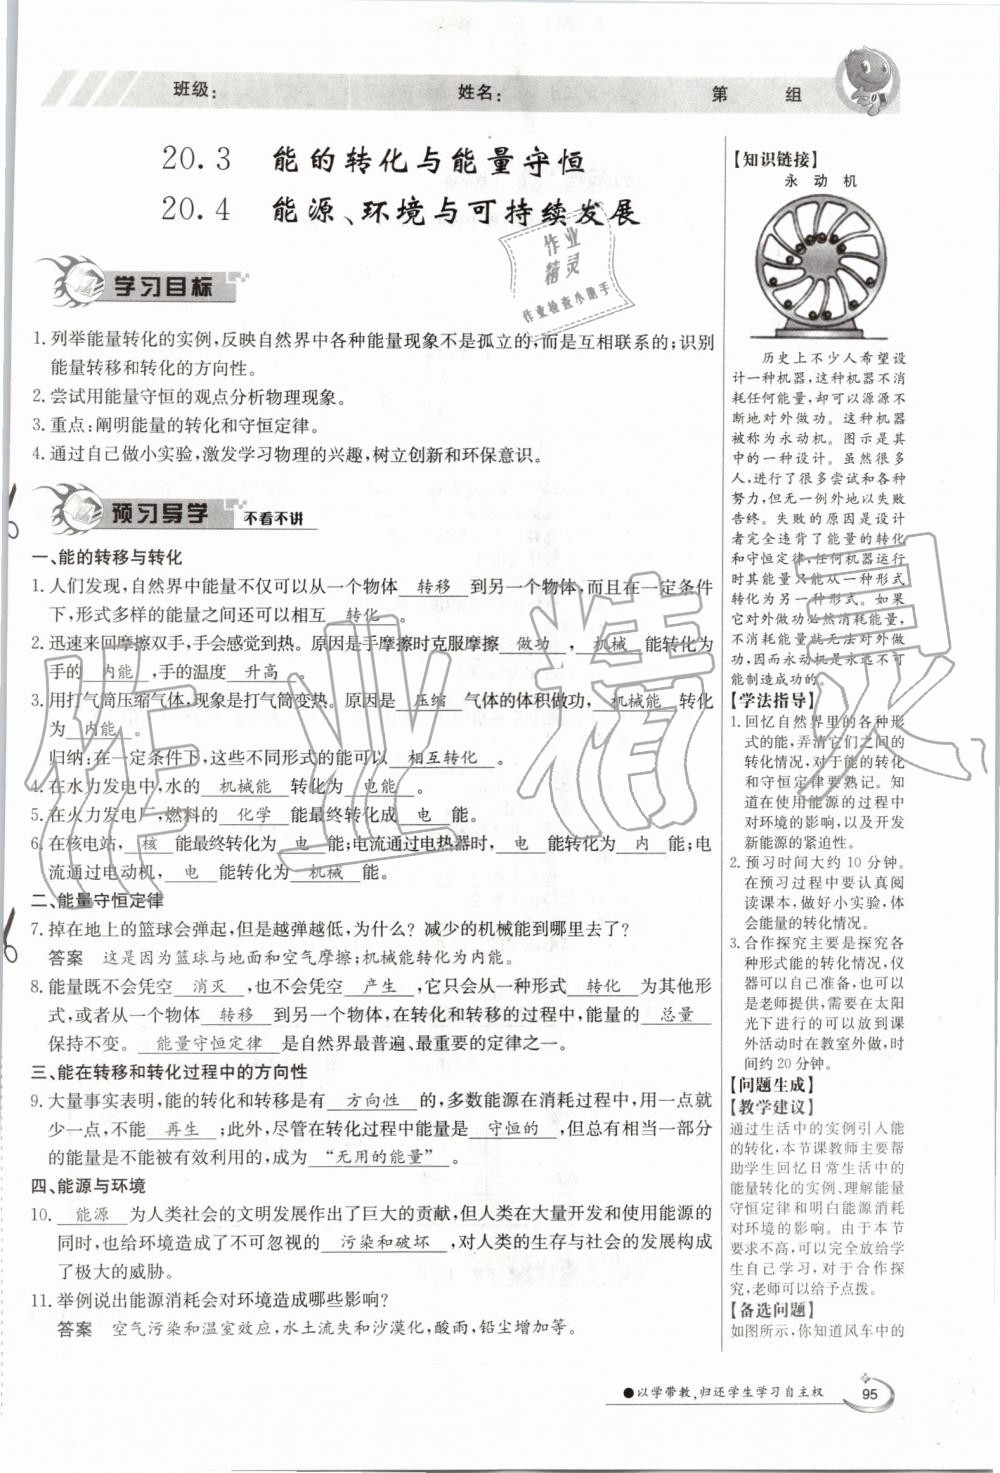 班级：
姓名：
第 组
20.3 能的转化与能量守恒
20.4 能源、环境与可持续发展
学习目标
1. 列举能量转化的实例,反映自然界中各种能量现象不是孤立的,而是互相联系的;识别
能量转移和转化的方向性。
2. 尝试用能量守恒的观点分析物理现象。
3. 重点:阐明能量的转化和守恒定律。
4. 通过自己做小实验,激发学习物理的兴趣,树立创新和环保意识。
预习导学 不看不讲
一、能的转移与转化
1. 人们发现,自然界中能量不仅可以从一个物体 转移 到另一个物体,而且在一定条件
下,形式多样的能量之间还可以相互 转化 。
2. 迅速来回摩擦双手,手会感觉到热。原因是手摩擦时克服摩擦 做功 , 机械 能转化为
手的 内能 ,手的温度 升高 。
3. 用打气筒压缩气体,现象是打气筒变热。原因是 压缩 气体的体积做功, 机械能 转化
为 内能 。
归纳:在一定条件下,这些不同形式的能可以 相互转化 。
4. 在水力发电中,水的 机械能 转化为 电能 。
5. 在火力发电厂,燃料的 化学 能最终转化成 电 能。
6. 在核电站, 核 能最终转化为 电 能;电流通过电热器时, 电 能转化为 内 能;电
流通过电动机, 电 能转化为 机械 能。
二、能量守恒定律
7. 掉在地上的篮球会弹起,但是越弹越低,为什么? 减少的机械能到哪里去了?
答案 这是因为篮球与地面和空气摩擦;机械能转化为内能。
8. 能量既不会凭空 消灭 ,也不会凭空 产生 ,它只会从一种形式 转化 为其他形
式,或者从一个物体 转移 到另一个物体,在转化和转移的过程中,能量的 总量
保持不变。 能量守恒定律 是自然界最普遍、最重要的定律之一。
三、能在转移和转化过程中的方向性
9. 大量事实表明,能的转化和转移是有 方向性 的,多数能源在消耗过程中,用一点就
少一点,不能 再生 ;此外,尽管在转化过程中能量是 守恒的 ,但总有相当一部分
的能量是不能被有效利用的,成为 “无用的能量” 。
四、能源与环境
10. 能源 为人类社会的文明发展作出了巨大的贡献,但人类在大量开发和使用能源的
同时,也给环境造成了不可忽视的 污染和破坏 ,对人类的生存与社会的发展构成
了极大的威胁。
11. 举例说出能源消耗会对环境造成哪些影响?
答案 空气污染和温室效应,水土流失和沙漠化,酸雨,铅尘增加等。
【知识链接】
永动机
历史上不少人希望设
计一种机器,这种机器不消
耗任何能量,却可以源源不
断地对外做功。这种机器
被称为永动机。图示是其
中的一种设计。虽然很多
人进行了很多尝试和各种
努力,但无一例外地以失败
告终。失败的原因是设计
者完全违背了能量的转化
和守恒定律,任何机器运行
时其能量只能从一种形式
转化为另一种形式。如果
它对外做功必然消耗能量,
不消耗能量就无法对外做
功,因而永动机是永远不可
能制造成功的。
【学法指导】
1. 回忆自然界里的各种形
式的能,弄清它们之间的
转化情况,对于能的转化
和守恒定律要熟记。知
道在使用能源的过程中
对环境的影响,以及开发
新能源的紧迫性。
2. 预习时间大约10分钟。
在预习过程中要认真阅
读课本,做好小实验,体
会能量的转化情况。
3. 合作探究主要是探究各
种形式能的转化情况,仪
器可以自己准备,也可以
是老师提供,需要在太阳
光下进行的可以放到课
外活动时在教室外做,时
间约20分钟。
【问题生成】
【教学建议】
通过生活中的实例引入能
的转化,本节课教师主要帮
助学生回忆日常生活中的
能量转化的实例、理解能量
守恒定律和明白能源消耗
对环境的影响。由于本节
要求不高,可以完全放给学
生自己学习,对于合作探
究,老师可以给予点拨。
【备选问题】
如图所示,你知道风车中的
●以学带教,归还学生学习自主权
95
作业
精灵
作业检查小助手
作业精灵